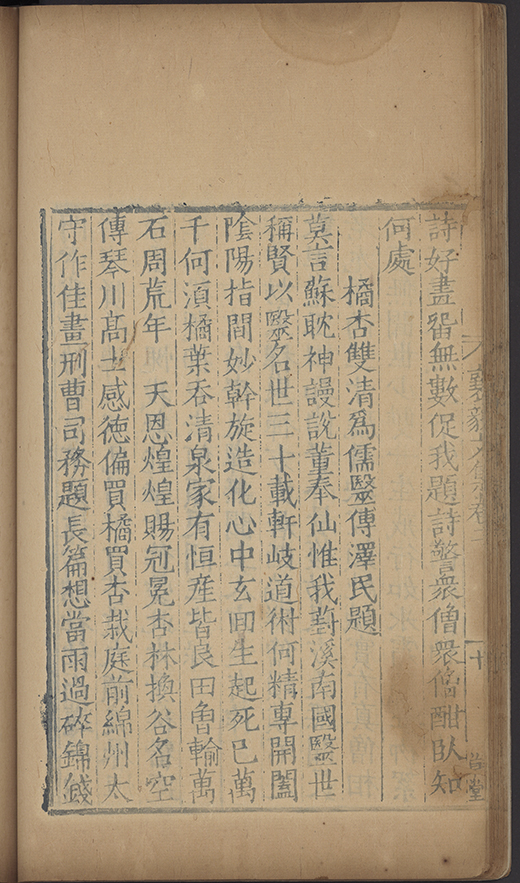 詩好盡畱無數促我題詩警衆僧衆僧酣臥知
何處
橘杏雙清爲儒毉傅澤民題
莫言蘇耽神謾說董奉仙惟我葑溪南國毉世
稱賢以毉名世三十載軒岐道術何精專開闔
陰陽指間妙幹旋造化心中玄囬生起死巳萬
千何湏橘葉吞清泉家有恒産皆良田曾輸萬
石周荒年 天恩煌煌賜冠冕杏林換谷名空
傳琴川髙士感徳偏買橘買杏栽庭前綿州太
守作佳畫刑曹司務題長篇想當雨過碎錦錢